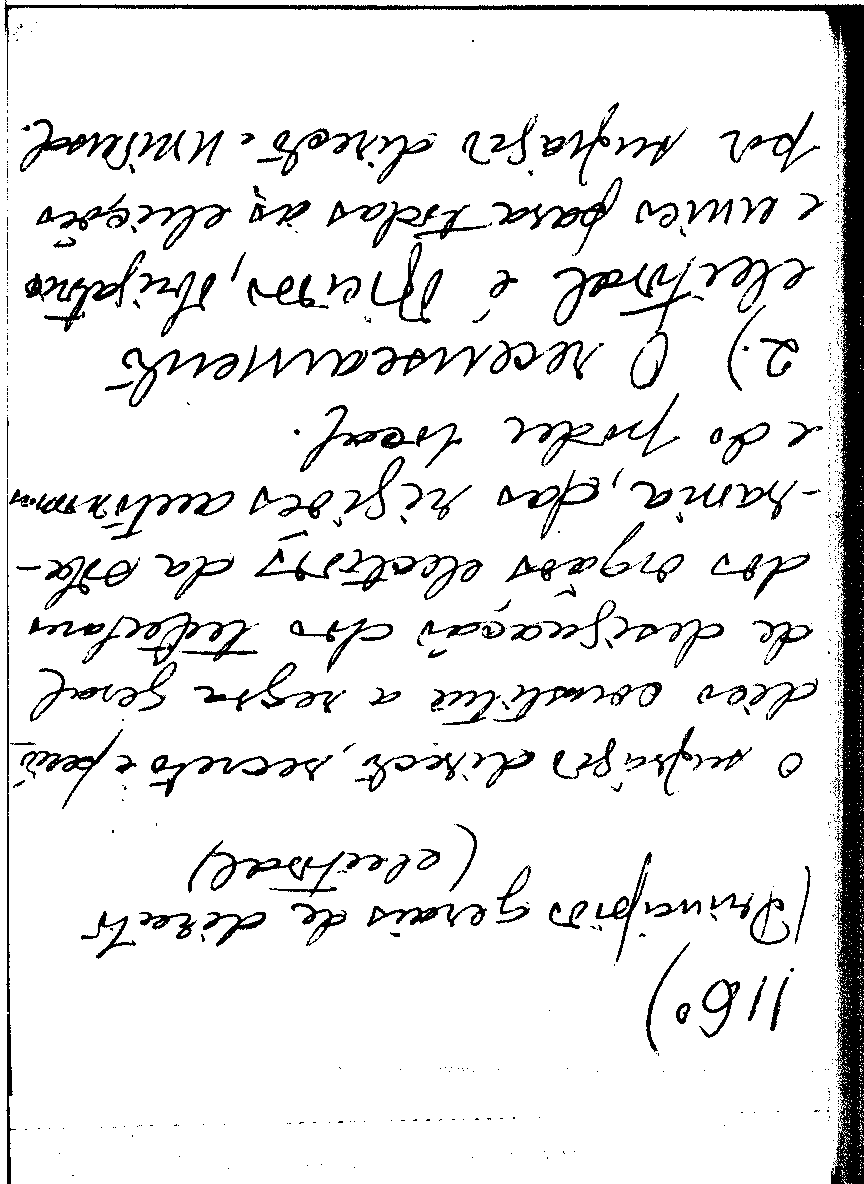 116º)
(Principios gerais de direito
(eleitoral)
O sufrágio directo, secreto e perió
dico constitui a regra geral
de designação dos titulares
dos orgãos electivos da sobe-
-rania, das regiões autónomas
e do poder local.
2.) O recenseamento
eleitoral é oficioso, obrigatório
e unico para todas as eleições
por sufrágio directo e universal.